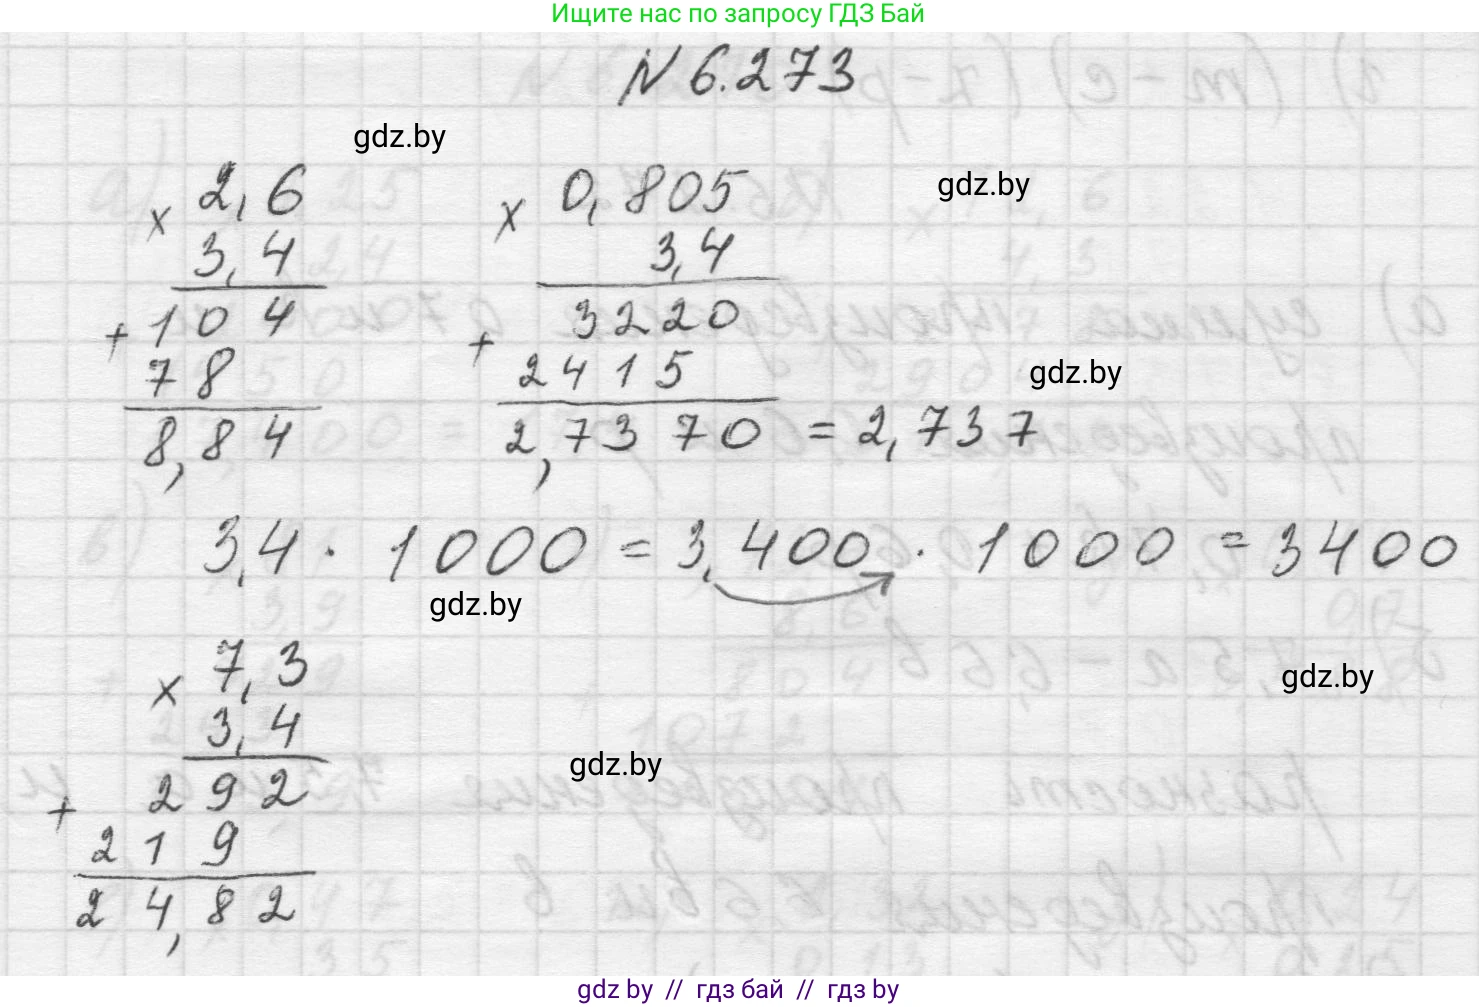 Ищите нас по запросу ГДЗ Бай
N 6.273
gdz.by
gdz.by
2,6
× 3,4
104
+ 78
8,84
0,805
× 3,4
3220
+ 2415
2,7370 = 2,737
gdz.by
3,4 · 1000 = 3,400 · 1000 = 3400
gdz.by
7,3
× 3,4
292
+ 219
24,82
gdz.by
gdz.by
gdz by // гдз бай // гдз by